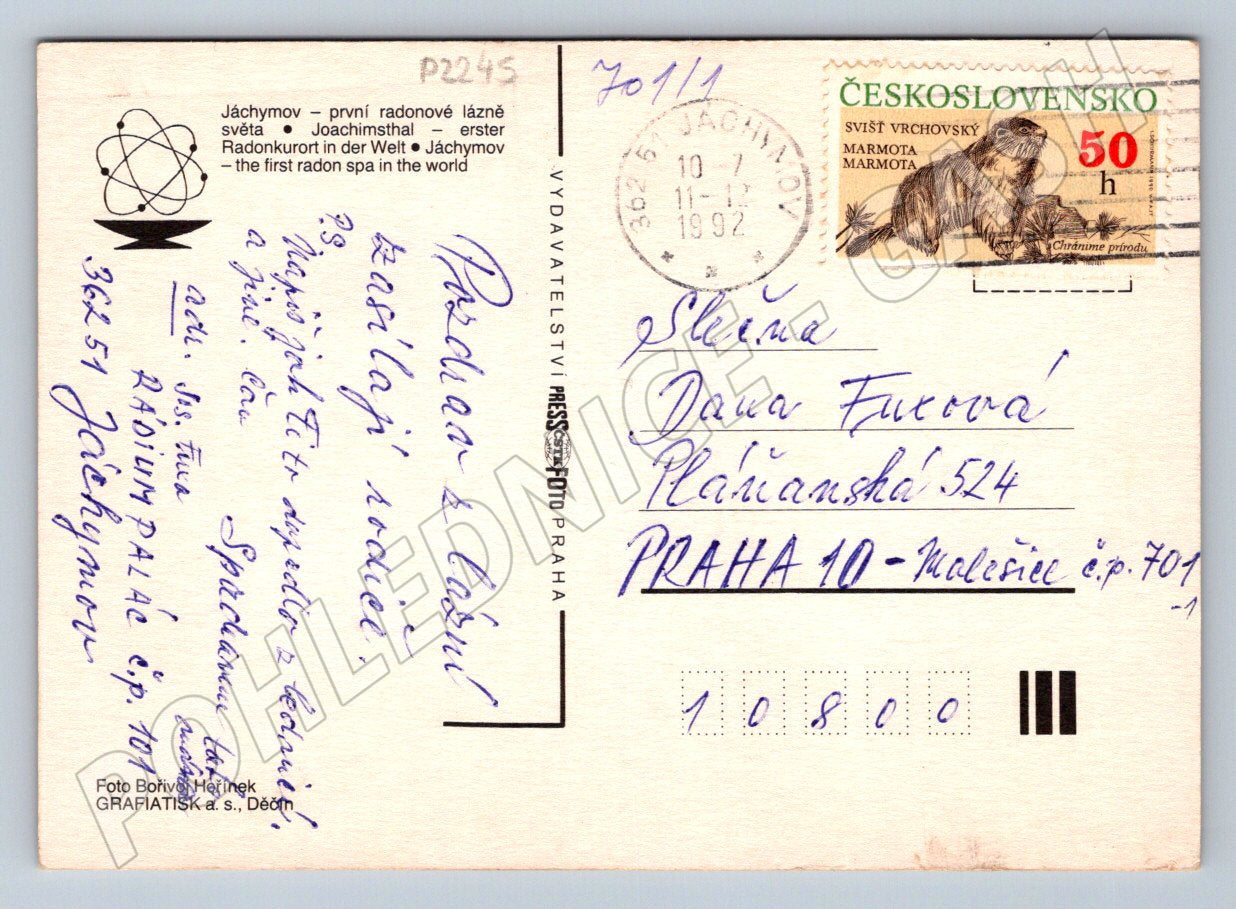 P2245
Jáchymov – první radonové lázně
světa ● Joachimsthal – erster
Radonkurort in der Welt ● Jáchymov
– the first radon spa in the world
Pozdrav z lázní
zasílají rodiče.
P.S
Napiš jak Ti to dopadlo z
a jiné.
adr. Jos. Fux
RÁDIUM PALÁC č.p. 101
362 51 Jáchymov
Foto Bořivoj Hořínek
GRAFIATISK a. s., Děčín
VYDAVATELSTVÍ PRESSFOTO PRAHA
ČSTK
701/1
362 51 JÁCHYMOV
10 7
11-12
1992
ČESKOSLOVENSKO
SVIŠŤ VRCHOVSKÝ
MARMOTA
MARMOTA
50
h
Chránime prírodu
Slečna
Dana Fuxová
Pláňanská 524
PRAHA 10 - Malešice č.p. 701
-1
1 0 8 0 0
POHLEDNICE - CASH